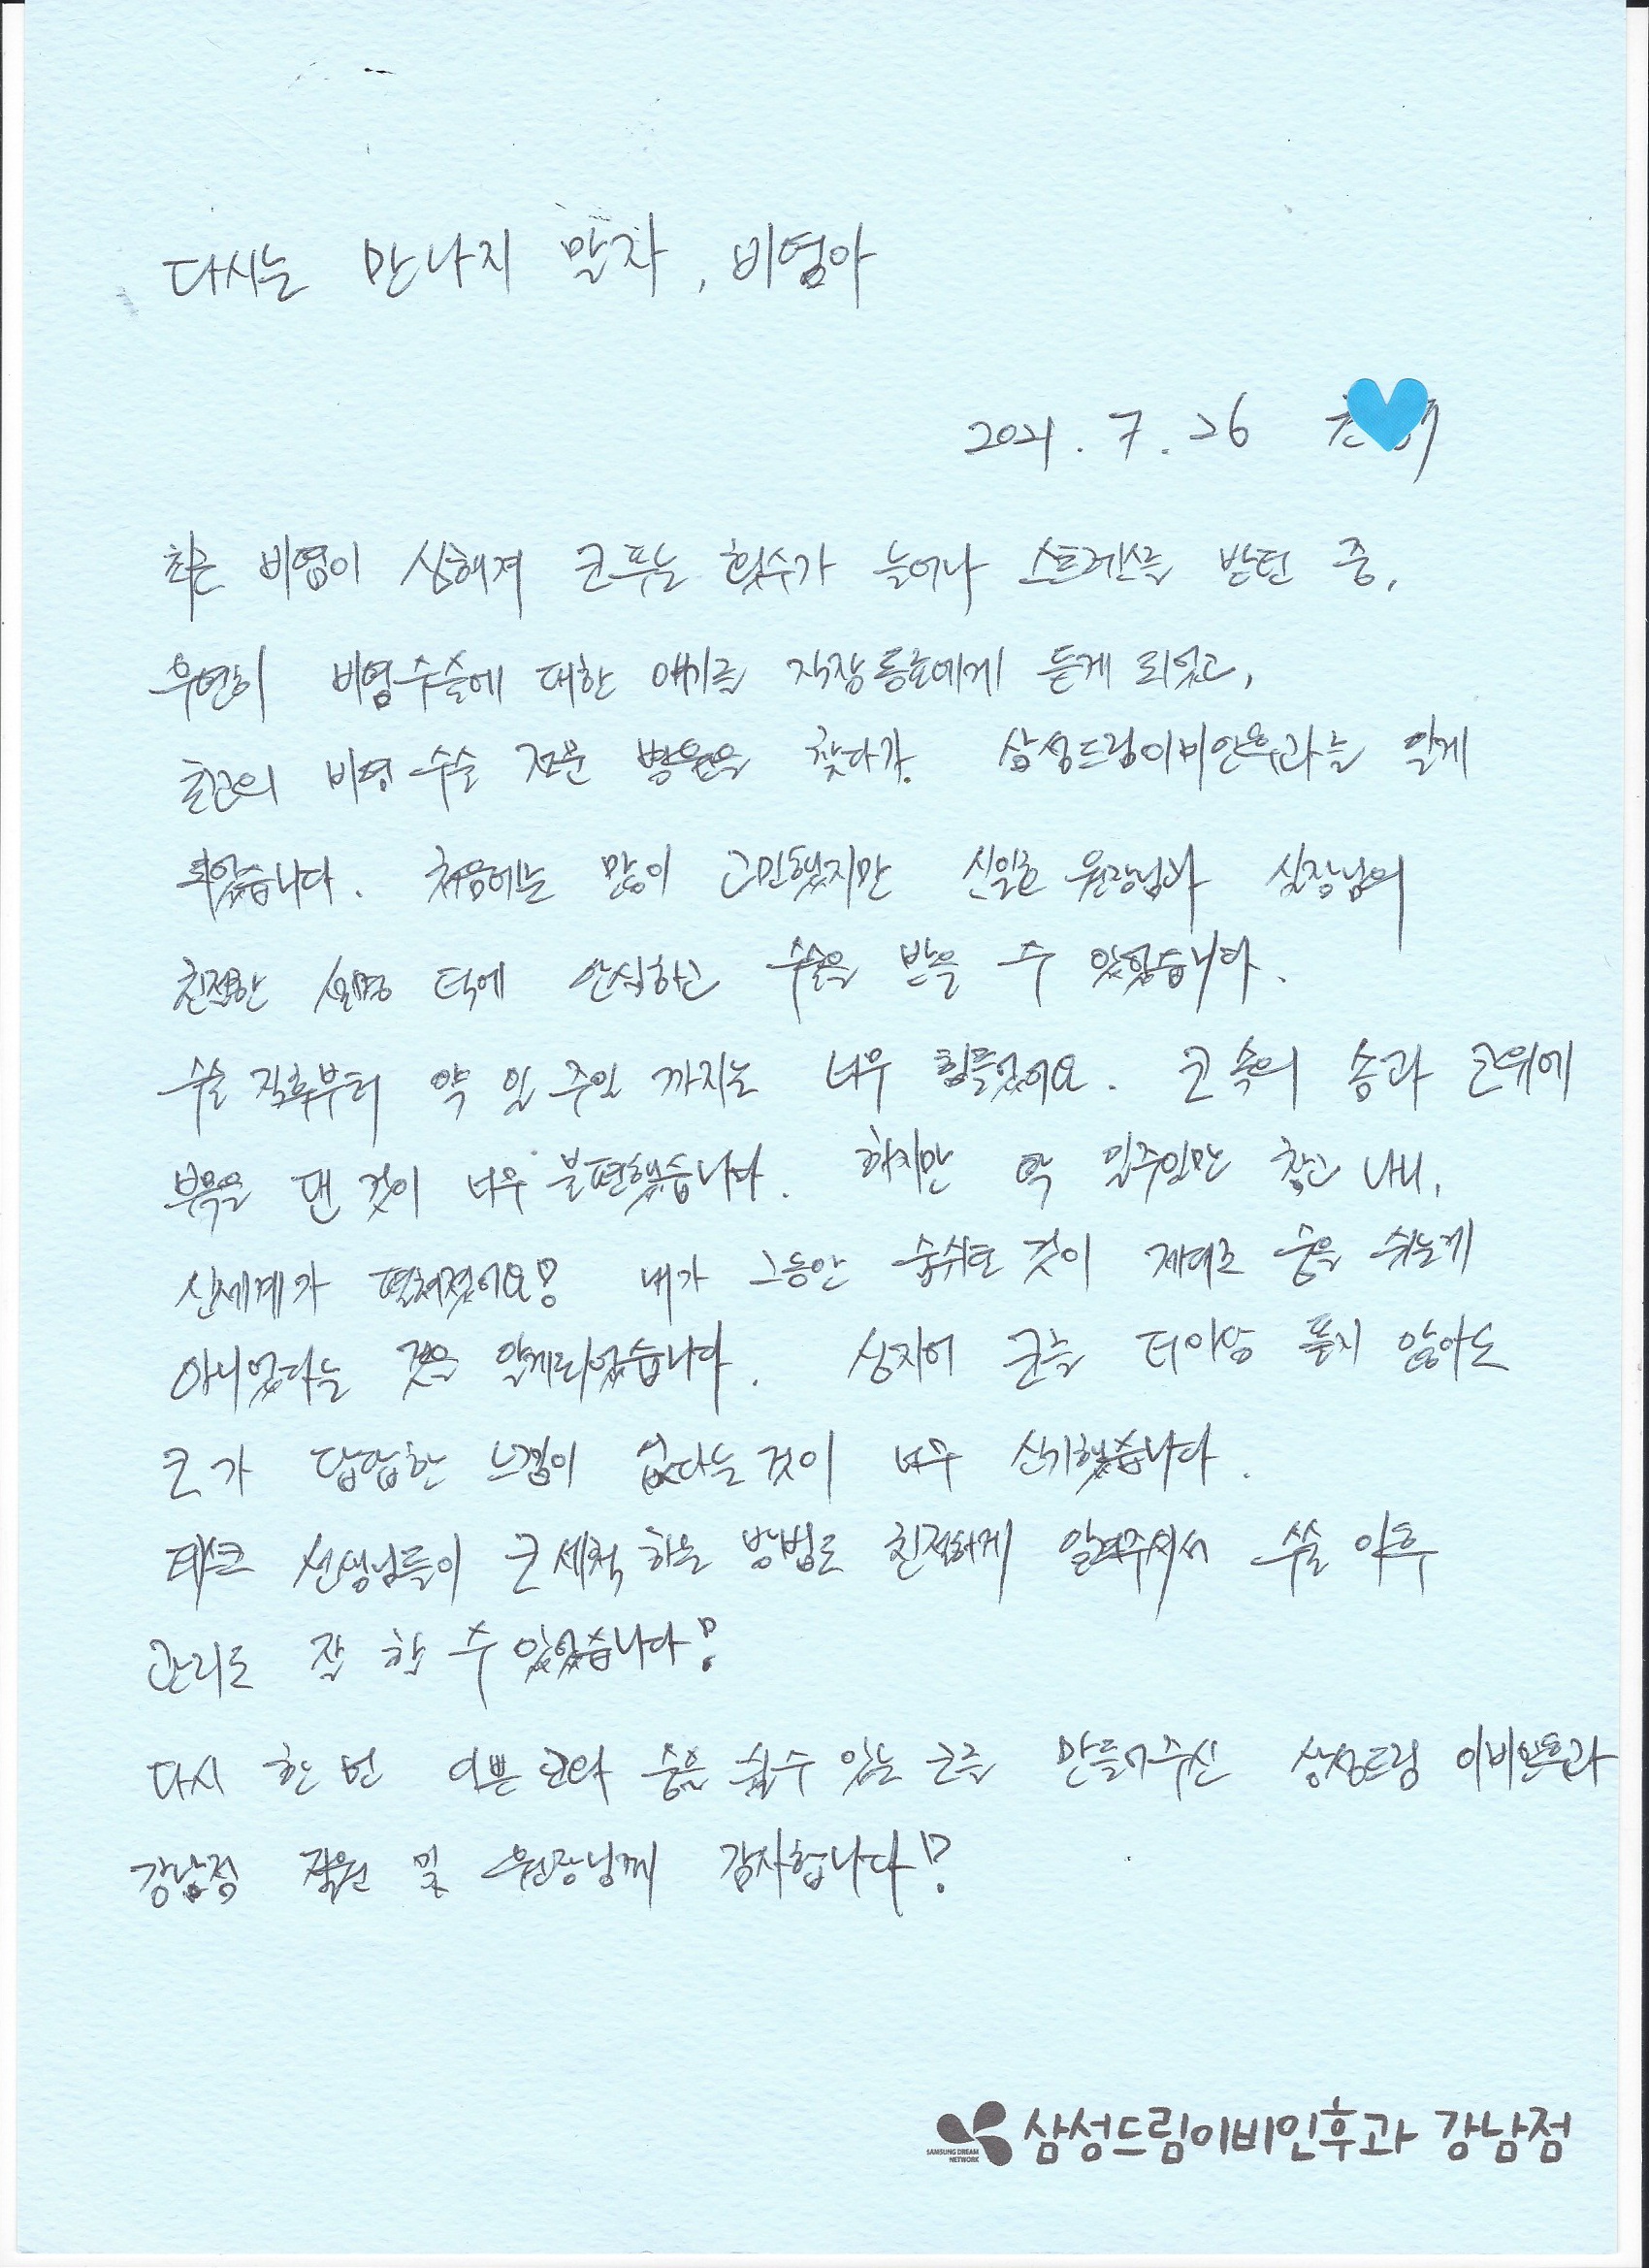 다시는 만나지 말자, 비염아
2021. 7. 26
최근 비염이 심해져 코푸는 횟수가 늘어나 스트레스를 받던 중,
우연히 비염수술에 대한 얘기를 직장동료에게 듣게 되었고,
근의 비염 수술 전문 병원을 찾다가 삼성드림이비인후과를 알게
되었습니다. 처음에는 많이 고민했지만 신일호 원장님과 실장님의
친절한 설명 덕에 안심하고 수술을 받을 수 있었습니다.
수술 직후부터 약 일주일 까지는 너무 힘들었어요. 코 속의 솜과 코위에
부목을 댄 것이 너무 불편했습니다. 하지만 딱 일주일만 참고 나니,
신세계가 펼쳐졌어요! 내가 그동안 숨쉬던 것이 제대로 숨을 쉬는게
아니었다는 것을 알게되었습니다. 심지어 코를 더이상 풀지 않아도
코가 답답한 느낌이 없다는 것이 너무 신기했습니다.
데스크 선생님들이 코 세척 하는 방법도 친절하게 알려주셔서 수술 이후
관리도 잘 할 수 있었습니다!
다시 한 번 이쁜 코와 숨을 쉴수 있는 코를 만들어주신 삼성드림 이비인후과
강남점 직원 및 원장님께 감사합니다!
SAMSUNG DREAM NETWORK 삼성드림이비인후과 강남점